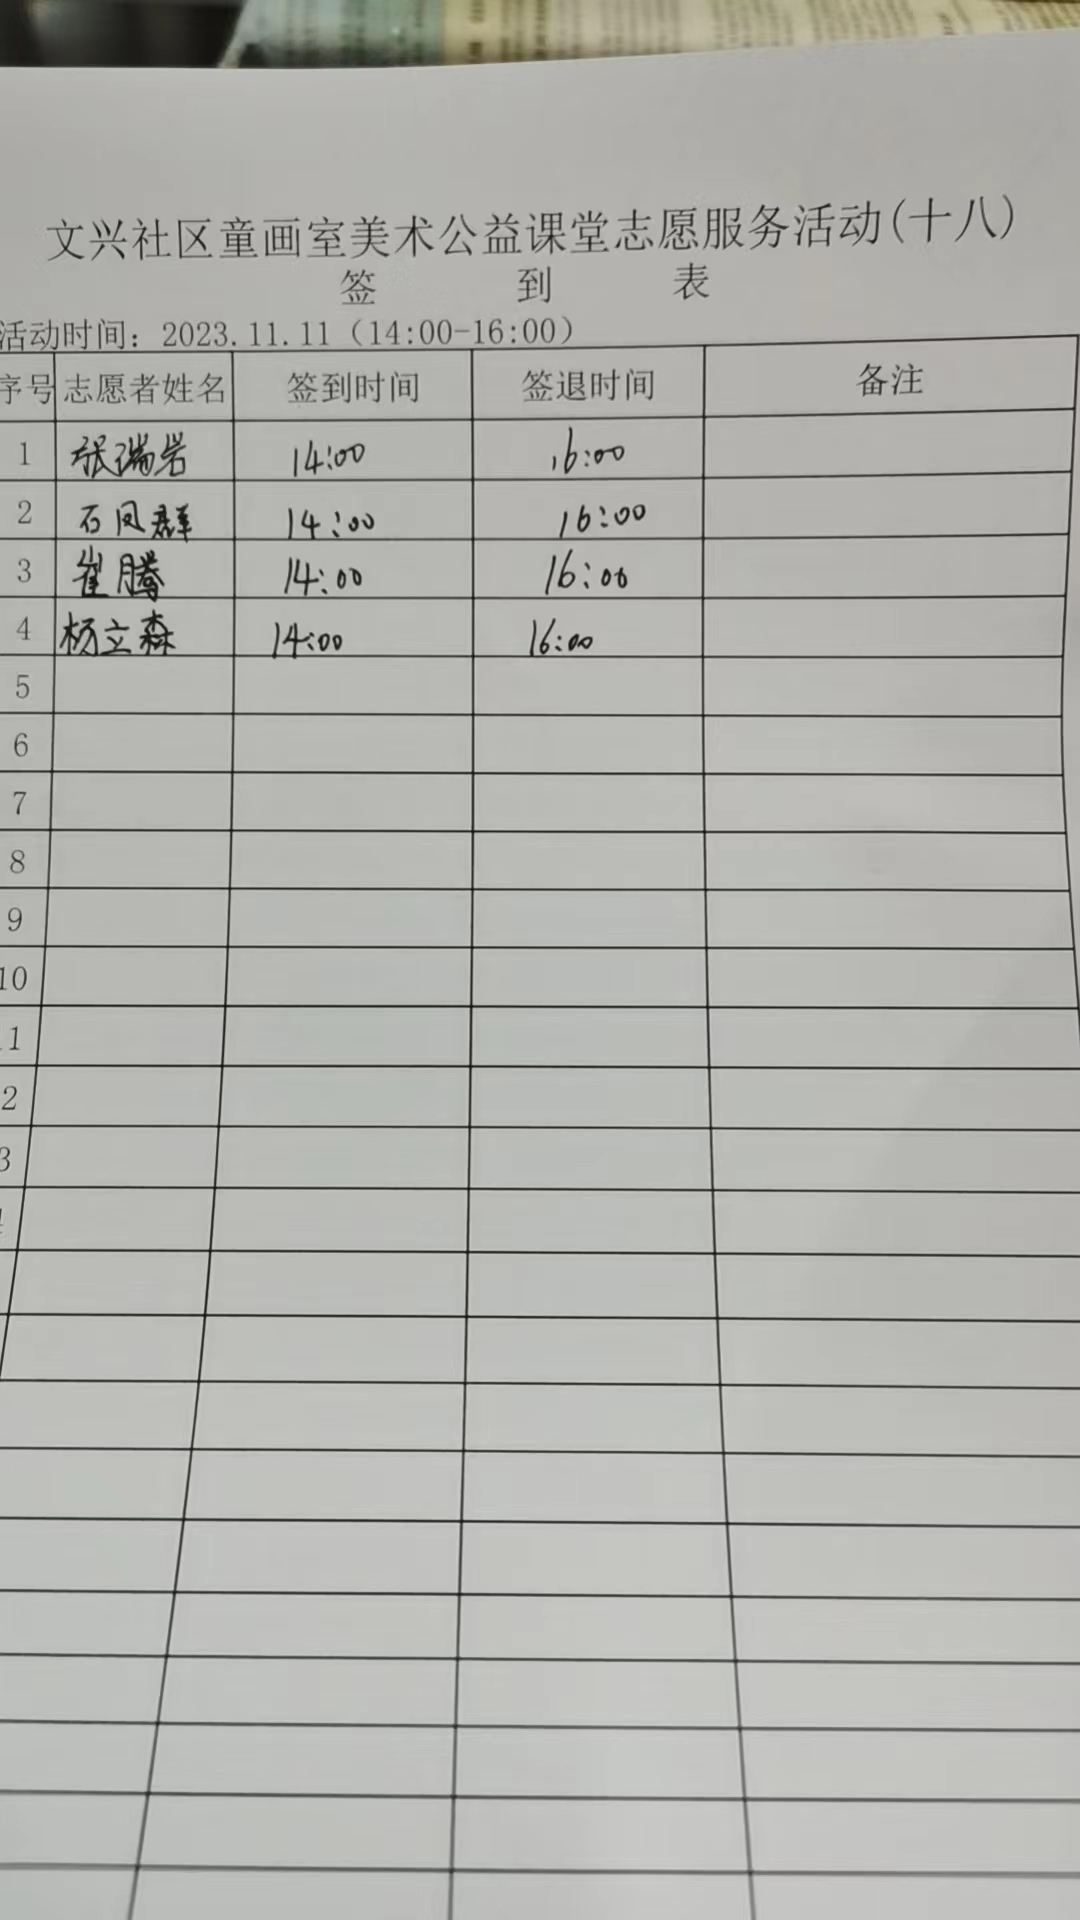 文兴社区童画室美术公益课堂志愿服务活动(十八)
签 到 表
活动时间：2023.11.11（14:00-16:00）
序号 志愿者姓名 签到时间 签退时间 备注
1 张瑞岩 14:00 16:00
2 石凤群 14:00 16:00
3 崔腾 14:00 16:00
4 杨立森 14:00 16:00
5
6
7
8
9
10
11
2
3
4